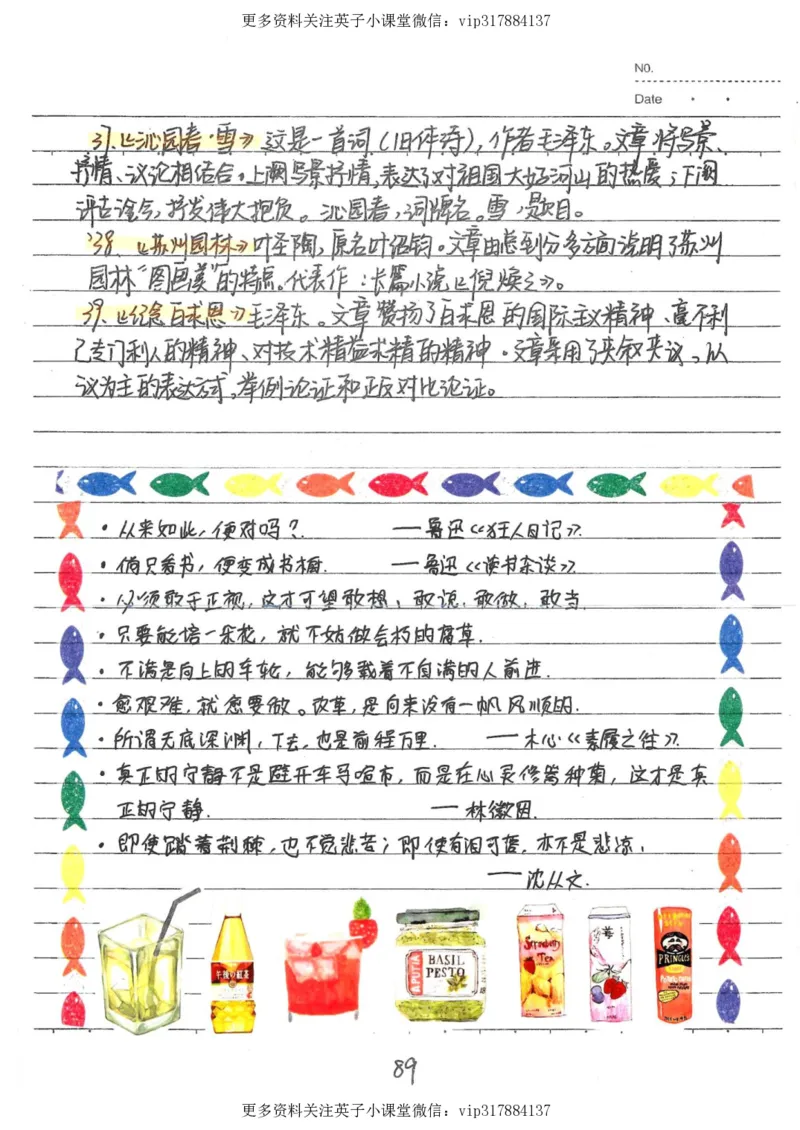 更多资料关注英子小课堂微信：vip317884137
NO.
Date
37.《沁园春·雪》这是一首词(旧体诗)，作者毛泽东。文章将写景、
抒情、议论相结合。上阕写景抒情，表达了对祖国大好河山的热爱；下阕
评古论今，抒发伟大抱负。沁园春，词牌名。雪，题目。
38、《苏州园林》叶圣陶，原名叶绍钧。文章由总到分多方面说明了苏州
园林“图画美”的特点。代表作：长篇小说《倪焕之》。
39、《纪念白求恩》毛泽东。文章赞扬了白求恩的国际主义精神、毫不利
己专门利人的精神、对技术精益求精的精神。文章采用了夹叙夹议，以
议为主的表达方式，举例论证和正反对比论证。
·从来如此，便对吗？ ——鲁迅《狂人日记》.
·倘只看书，便变成书橱. ——鲁迅《读书杂谈》
·必须敢于正视，这才可望敢想，敢说，敢做，敢当.
·只要能培一朵花，就不妨做会朽的腐草.
·不满是向上的车轮，能够载着不自满的人前进.
·愈艰难，就愈要做。改革，是向来没有一帆风顺的.
·所谓无底深渊，下去，也是前程万里. ——木心《素履之往》.
·真正的宁静不是避开车马喧市，而是在心灵修篱种菊，这才是真
正的宁静. ——林徽因.
·即使踏着荆棘，也不觉悲苦；即使有泪可落，亦不是悲凉，
——沈从文.
午後の紅茶
APUTIA
BASIL
PESTO
Strawberry
Tea
莓
PRINGLES
89
更多资料关注英子小课堂微信：vip317884137